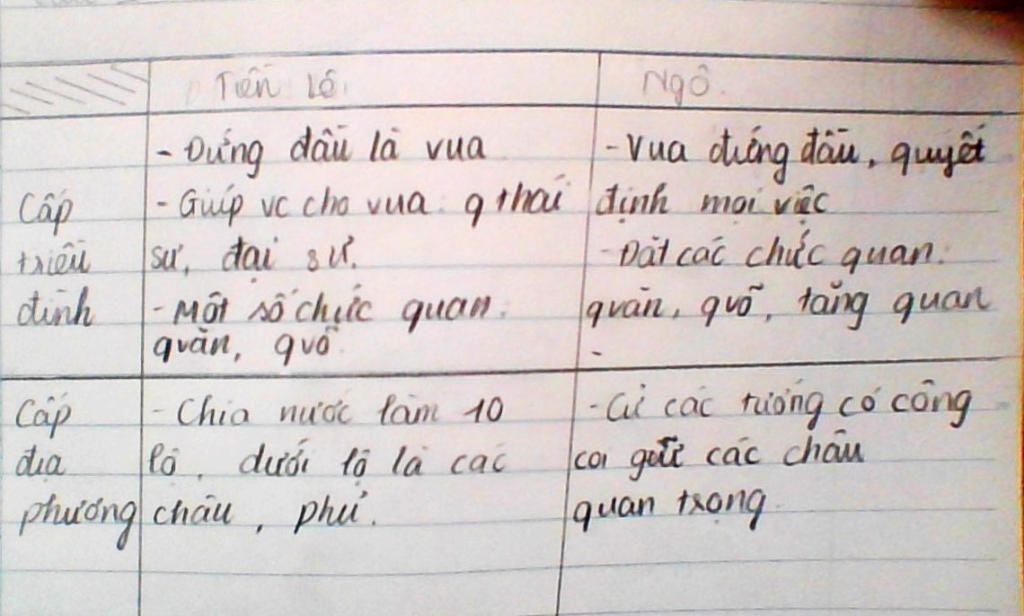 Tiền Lê Ngô.
- Đứng đầu là vua - Vua đứng đầu, quyết
Cấp - Giúp vc cho vua: q thái định mọi việc
triều sư, đại sư. - Đặt các chức quan:
đình - Một số chức quan: quăn, quõ, tăng quan
quăn, quõ. -
Cấp - Chia nước làm 10 - Cử các tướng có công
địa lộ, dưới lộ là các coi giữ các châu
phương châu, phủ. quan trọng